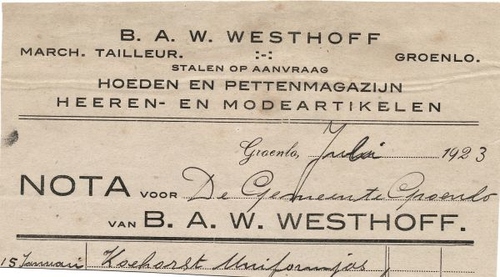 B. A. W. WESTHOFF
MARCH. TAILLEUR. :-: GROENLO.
STALEN OP AANVRAAG
HOEDEN EN PETTENMAGAZIJN
HEEREN- EN MODEARTIKELEN
Groenlo, Juli 1923
NOTA VOOR De Gemeente Groenlo
VAN B. A. W. WESTHOFF.
15 Januari Koehorst Uniformjas